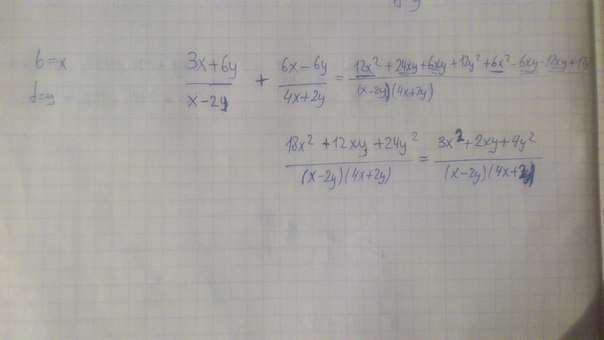 b=x
d=y
(3x+6y)/(x-2y) + (6x-6y)/(4x+2y) = (12x²+24xy+6xy+12y²+6x²-6xy-12xy+12y²)/((x-2y)(4x+2y))
(18x²+12xy+24y²)/((x-2y)(4x+2y)) = (3x²+2xy+4y²)/((x-2y)(4x+2y))